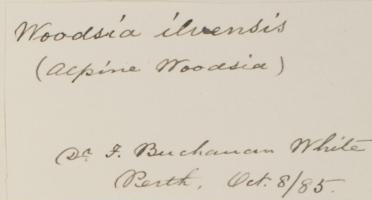 Woodsia ilvensis
(Alpine Woodsia)
Dr. F. Buchanan White
Perth, Oct. 8/85.